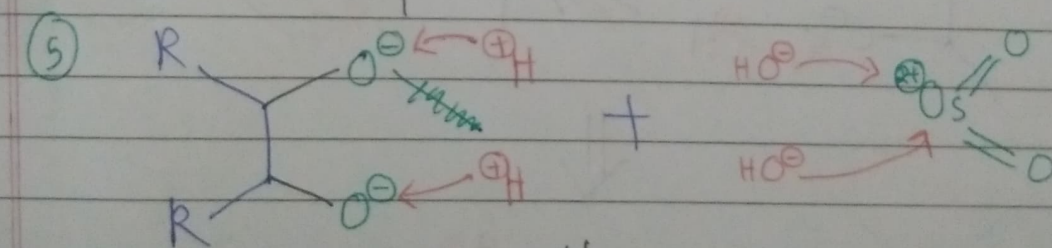 5 R O⊖ ⊕H HO⊖ 2+ Os O
+
R O⊖ ⊕H HO⊖ O